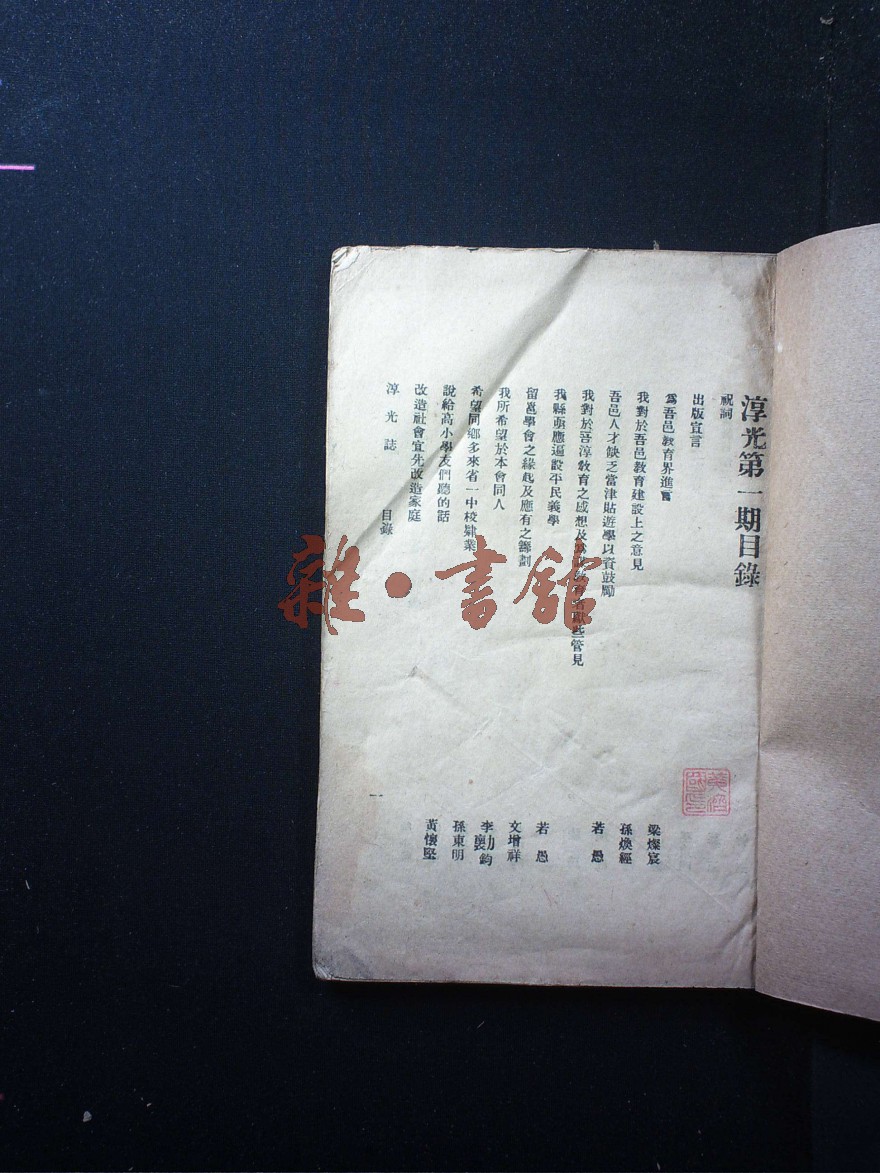 淳光第一期目錄
祝詞
出版宣言
為吾邑教育界進言
我對於吾邑教育建設上之意見 梁燦宸
吾邑人才缺乏當津貼遊學以資鼓勵 孫煥經
我對於吾淳教育之感想及 管見 若愚
我縣亟應遍設平民義學
留邕學會之緣起及應有之籌劃 若愚
我所希望於本會同人 文增祥
希望同鄉多來省一中校肄業 李勷鈞
說給高小學友們聽的話 孫東明
改造社會宜先改造家庭 黃懷堅
淳光誌 目錄 一
雜·書館